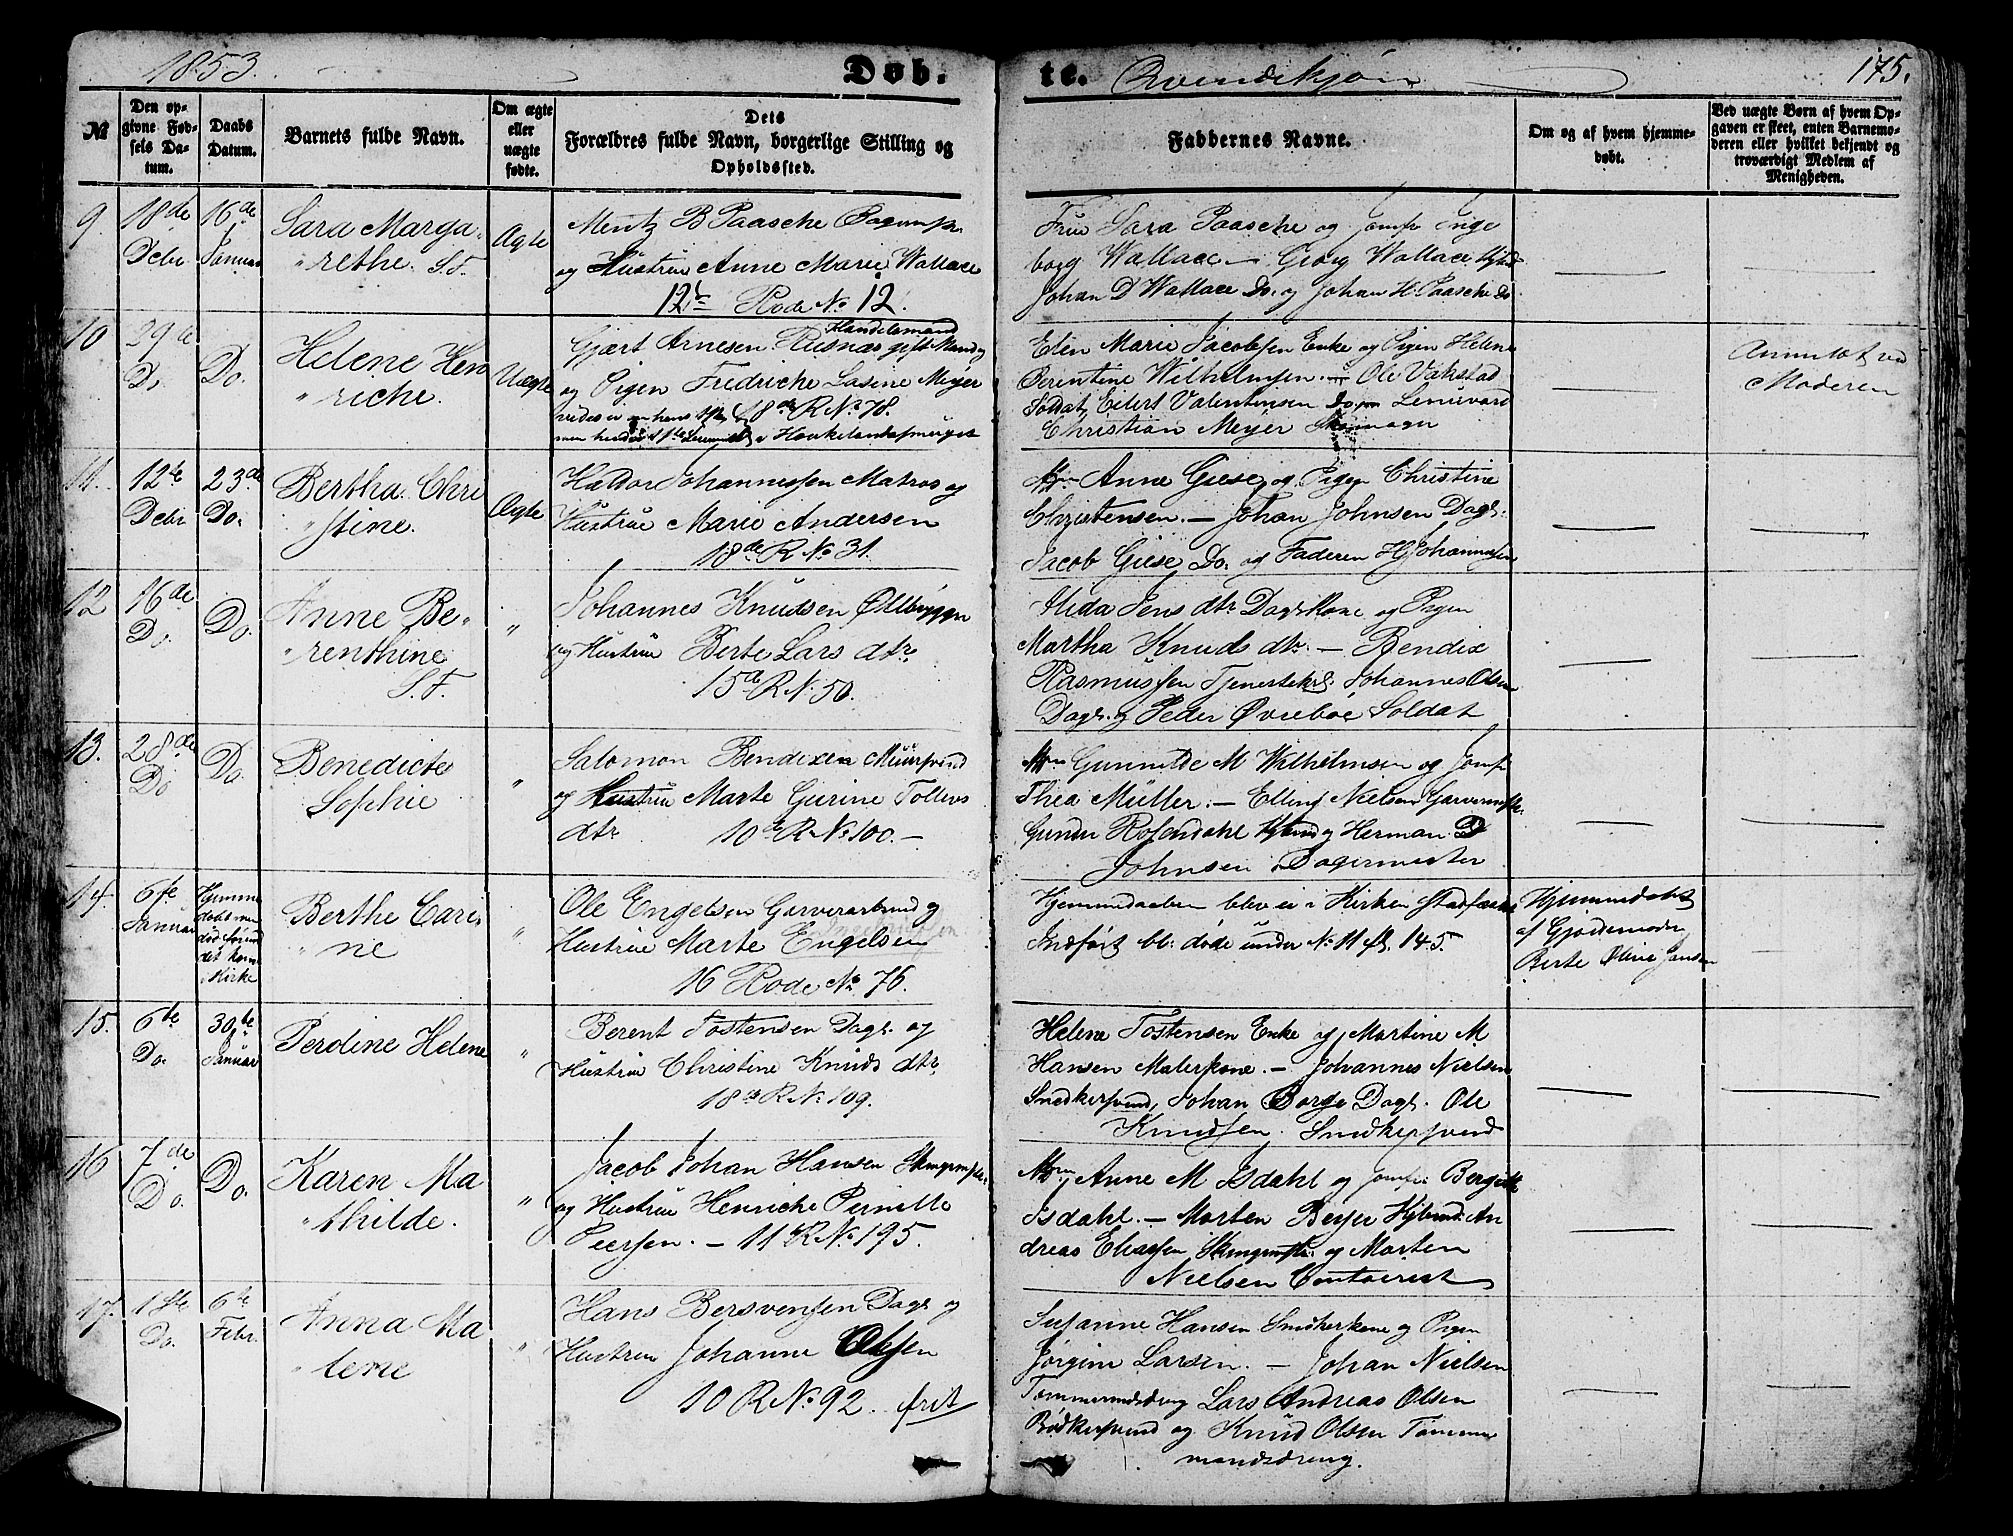 1853.
Døb.
te.
Qvindekjøn
175.
№
Den opgivne Fødsels Datum.
Daabs Datum.
Barnets fulde Navn.
Om ægte eller uægte fødte.
Dets
Forældres fulde Navn, borgerlige Stilling og
Opholdssted.
Faddernes Navne.
Om og af hvem hjemmedøbt.
Ved uægte Børn af hvem Opgaven er skeet, enten Barnemoderen eller hvilket bekjendt og troværdigt Medlem af Menigheden.
9.
18de Debr
16de Januar
Sara Marga-
rethe. S.F.
Ægte
Mentz B Paasche Bagermstr.
og Hustrue Anne Marie Wallace
12te Rode No 12.
Frue Sara Paasche og Jomfr Inge
borg Wallace — Georg Wallace
Johan D Wallace Do. og Johan H. Paasche Do
10
29de Do.
Do.
Helene Hen
riche.
Uægte
Handelsmand
Gjært Arnesen Husnæs gift Mand
og Pigen Fredriche Lasine Meyer
18de R No 78.
Elen Marie Jacobsen Enke og Pigen Helene
Berentine Wilhelmsen — Ole Vakstad
Soldat, Eilert Valentinsen Do.
Christian Meyer Skomager
Anmeldt ved
Moderen
11.
12te Debr
23de Do.
Bertha Chri
stine.
Ægte
Haldor Johannessen Matros og
Hustrue Marie Andersen
18de R No 31.
Mdm Anne Giese og Pigen Christine
Christensen. — Johan Johnsen Dagk.
Jacob Giese Do. og Faderen H Johannessen
12
16de Do.
Do.
Anne Be-
renthine
S.F.
"
Johannes Knudsen Ølbrygger
og Hustrue Berte Lars dtr.
15de R No. 50.
Alida Jens dtr Dagk. Kone og Pigen
Martha Knuds dtr. — Bendix
Rasmussen Tjenestekrl. Johannes Olsen
Dagk. og Peder Øvreboe Soldat
13.
28de Do
Do.
Benedicte
Sophie
"
Salomon Bendixen Muursvend
og Hustrue Marte Gurine Tollevs
dtr. 10de R No. 100. —
Mdm Gunnilde M Wilhelmsen og Jomfr
Thea Müller. — Elling Nielsen Garvermstr.
Gunder Rosendahl og Herman D
Johnsen Bagermester
14.
6te Januar
Berthe Cari-
ne
"
Ole Engelsen Garversvend og
Hustrue Marte Engelsen
16 Rode No. 76.
Hjemmedaaben blev ei i Kirken stadfæstet
Indført bl: døde under No 11 fl. 145.
Hjemmedøbt
af Gjordemoder
Berte Oline Jansen
15.
6te Do.
30te Januar
Perdine Helene
"
Berent Tostensen Dagk. og
Hustrue Christine Knuds dtr.
18de R No. 109.
Helene Tostensen Enke og Martine M
Hansen Malerkone. — Johannes Nielsen
Snedkersvend, Johan Borge Dagk. Ole
Knudsen Snedkersvend
16
7de Do.
Do.
Karen Ma
thilde.
"
Jacob Johan Hansen
og Hustrue Henriche Pernille
Peersen. — 11 R No. 195.
Mdm Anne M Isdahl og Jomfr: Bergitte
Isdahl. — Morten Beyer An
dreas Eliassen og Morten
Nielsen Contoirist
17.
1ste Do.
6te Febr.
Anna Ma
lene
"
Hans Bersvensen Dagk. og
Hustrue Johanne Olsen
10 R No. 92. frit
Susanne Hansen Smedkone og Pigen
Jørgine Larsen. — Johan Nielsen
Tømmermdsdreng Lars Andreas Olsen
Bødkersvend og Knud Olsen Tømmer
mandsdreng.